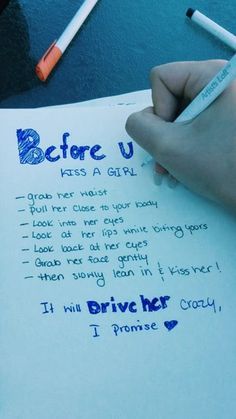 Before U
KISS A GIRL
- grab her waist
- Pull her close to your body
- Look into her eyes
- Look at her lips while biting yours
- Look back at her eyes
- Grab her face gently
- then slowly lean in & kiss her!
It will Drive her crazy,
I Promise ♥